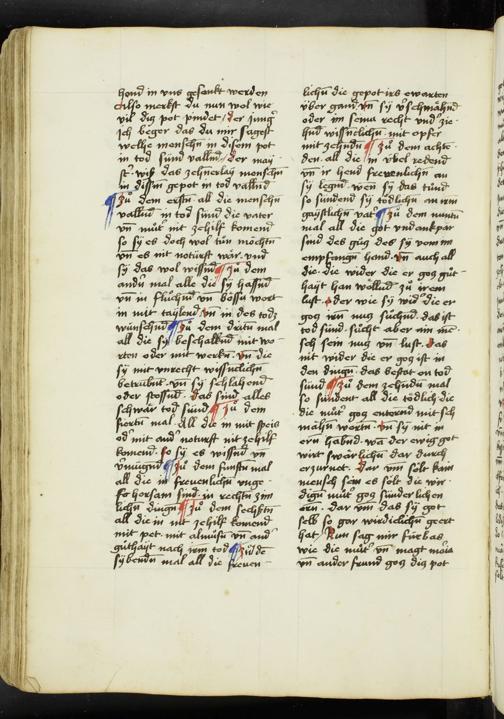 hend in uns gesenkt werden
Also merkst du nun wol wie
vil diß pot pindet / der jung
Ich beger das du mir sagest
welhe menschn in disem pot
in tod sünd vallnd / der mai
str wiß das zehnerlay menschn
in dissen gepot in tod vallnd
¶ Zu dem erstn all die menschn
vallnd in tod sünd die vater
vn mutr nit zehilf komend
so sy es doch wol tun möchtn
vn es nit noturft wär vnd
sy das wol wissnd ¶ Zu dem
andn mal alle die sy hassnd
vn in fluchnd vn bössu wort
in mit taylend vn in des todz
wünschnd ¶ Zu dem dritn mal
all die sy beschalknd mit wo-
rten oder mit werkn vn die
sy mit unrecht wissnclichn
betrübnt vn sy schlahend
oder stossnd das sind alles
schwär tod sünd ¶ Zu dem
fiertn mal All die in nit speis
od mit and noturft nit zehilf
komend so sy es wissnd vn
vmügnd ¶ Zu dem fünftn mal
all die in frevenlichn unge-
horsam sind in rechtn zim
lichn dingn ¶ Zu dem sechstn
all die in nit zehilf komend
mit pet mit almusn vn and
guthayt nach irem tod ¶ Zu de
sybendn mal all die freven-
lichn die gepot irs ewarten
über gand vn sy vschmähnd
oder im sein recht vnd zie-
hnd wissnclichn mit opfer
mit zehndn ¶ Zu dem achte
den all die in übel redend
vn ir hend frevenlichn an
sy legnd wen sy das tünd
so sündend sy tödlichn an irm
gaystlichn vatr ¶ Zu dem nuntn
mal all die got vndankpar
sind des gutz des sy von im
empfangn hand vn auch all
die die wider die er gotz gut-
hayt han wöllnd zu irem
lust der wie sy wid die er
gotz irn nutz suchnd das ist
tod sünd sücht aber ein me-
sch sein nutz vn lust das
nit wider die er gotz ist in
den dingn das bestot on tod
sünd ¶ Zu dem zehndn mal
so sündent all die tödlich die
die mutr gotz enterend mit sch
mähn wortn vn sy nit in
ern habnd wa der ewig got
wirt swarlichn dar durch
erzurnet Dar um sölt kain
mensch sein es sölt die wir-
dign mutr gotz sunderlichen
ern dar um das sy got
selb so gar wirdiclichn geert
hat Nun sag mir fürbas
wie die mutr vn magt maria
vn ander frund gotz diß pot